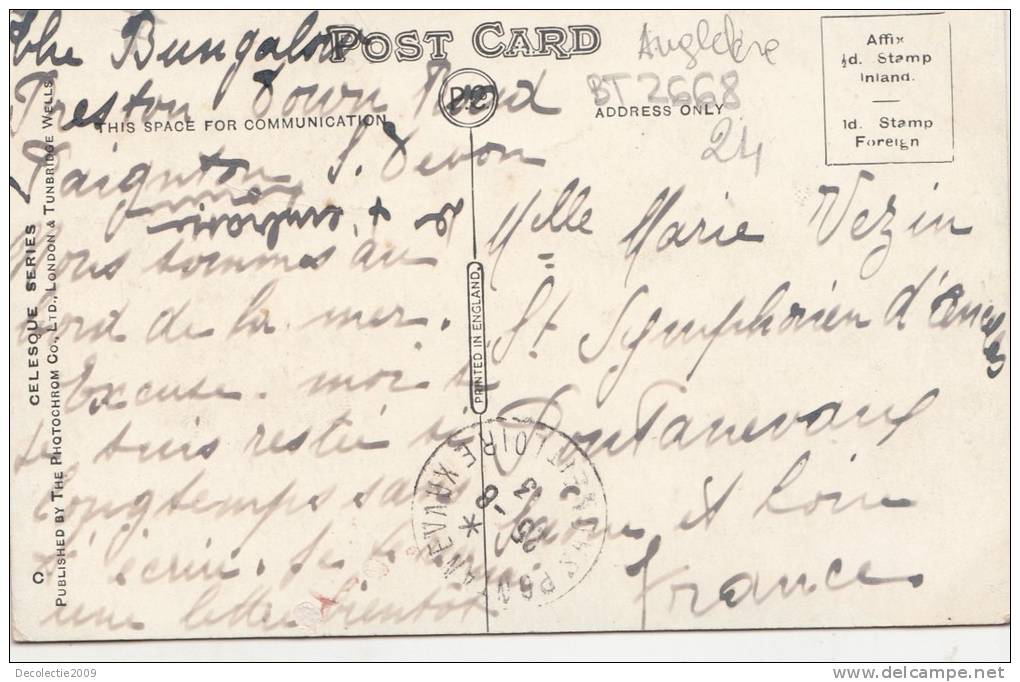 POST CARD
The Bungalow
Preston Down Road
Paignton S. Devon
THIS SPACE FOR COMMUNICATION
ADDRESS ONLY
Affix
½d. Stamp
Inland.
1d. Stamp
Foreign
Angleterre
BT 2668
24
Nous sommes au
bord de la mer.
Excuse-moi si
je suis restée si
longtemps sans
t'écrire. Je
une lettre bientôt
Mlle Marie Vezin
St Symphorien d'Ancelles
Pontanevaux
Saone et Loire
France
PONTANEVAUX
LOIRE
PRINTED IN ENGLAND.
CELESQUE SERIES
PUBLISHED BY THE PHOTOCHROM CO., LTD., LONDON & TUNBRIDGE WELLS
C
Decolectie2009
delcampe.net